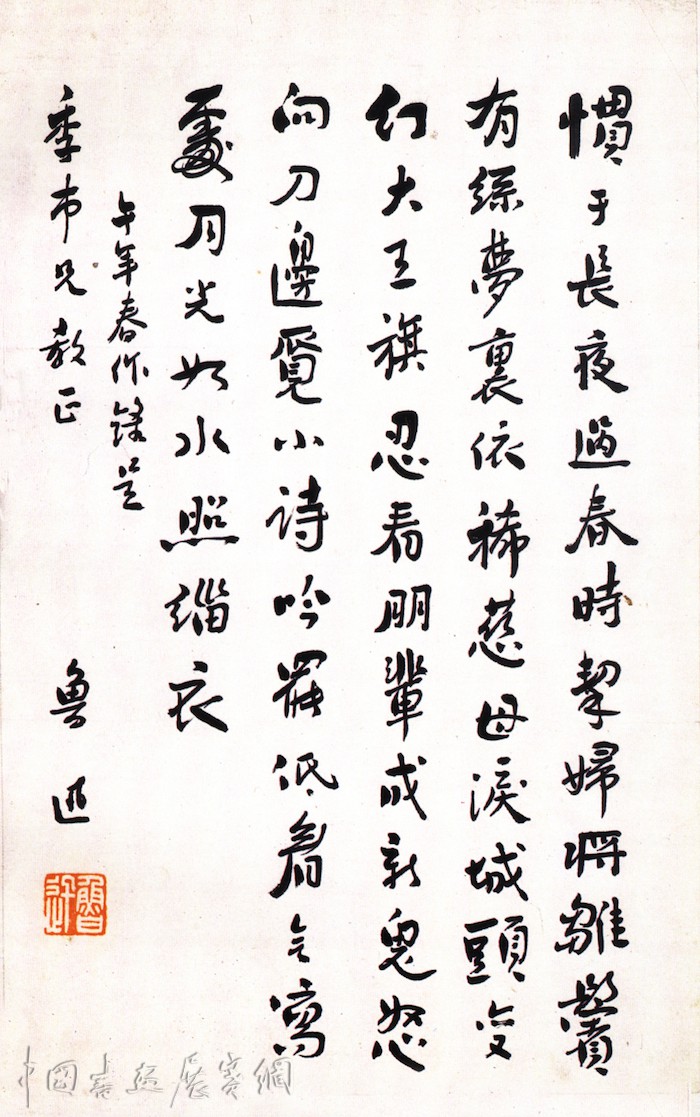 慣于長夜過春時挈婦將雛鬢
有絲夢裏依稀慈母淚城頭變
幻大王旗忍看朋輩成新鬼怒
向刀邊覓小詩吟罷低眉無寫
處月光如水照緇衣
午年春作錄呈
季市兄教正
魯迅
魯迅
中國書法展賽網